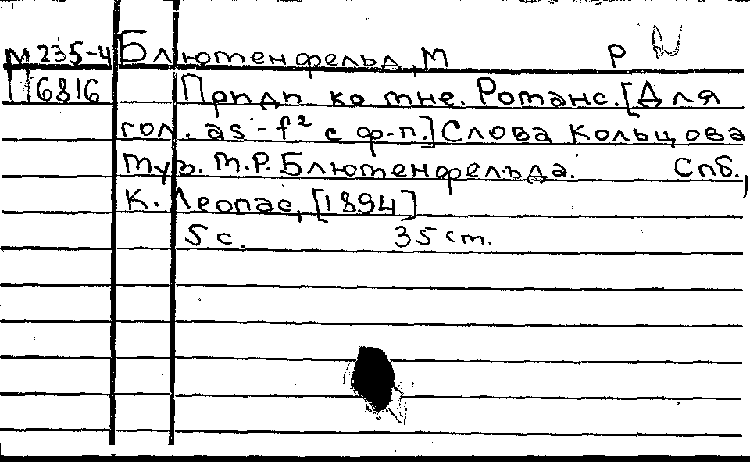 М 235-4 Блютенфельд, М Р
П 6816 Приди ко мне. Романс. [Для
гол. as-f² с ф-п.] Слова Кольцова
Муз. М.Р. Блютенфельда. Спб.,
К. Леопас, [1894]
5 с. 35 см.